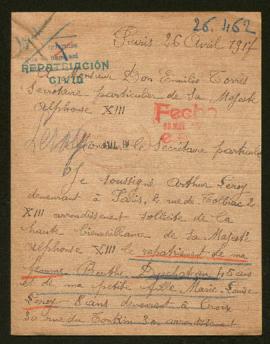 26.462
Paris 26 Avril 1917
REPATRIACIÓN
CIVIL
Monsieur Don Emilio Torres
Secretaire particulier de Sa Majesté
Alphonse XIII
Fecha
Leroy
Monsieur le Secrétaire particulier
Je soussigné Arthur Leroy
demeurant à Paris, 2 rue de Tolbiac
XIII arrondissement sollicite de la
haute bienveillance de Sa Majesté
Alphonse XIII le rapatriement de ma
femme Berthe 45 ans
et de ma petite fille Marie Louise
Leroy 8 ans demeurant à Croix
rue du Tonkin